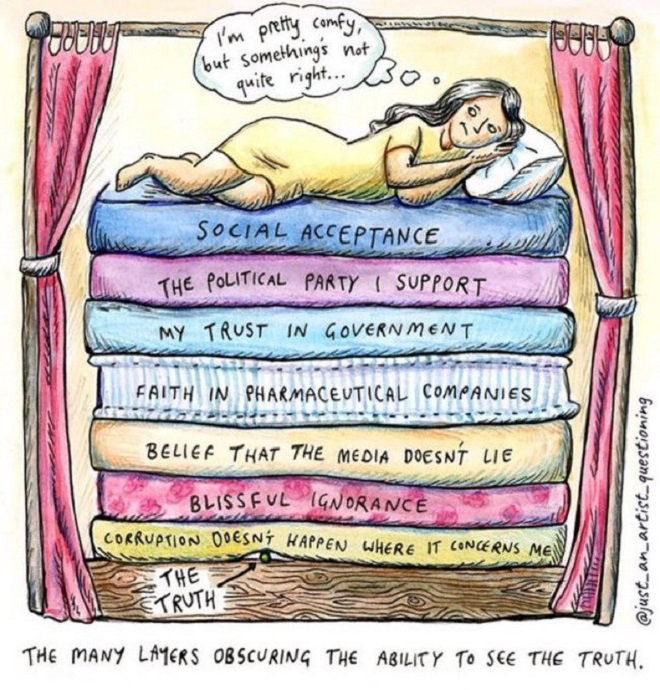 I'm pretty comfy,
but something's not
quite right...
SOCIAL ACCEPTANCE
THE POLITICAL PARTY I SUPPORT
MY TRUST IN GOVERNMENT
FAITH IN PHARMACEUTICAL COMPANIES
BELIEF THAT THE MEDIA DOESN'T LIE
BLISSFUL IGNORANCE
CORRUPTION DOESN'T HAPPEN WHERE IT CONCERNS ME
THE
TRUTH
@just_an_artist_questioning
THE MANY LAYERS OBSCURING THE ABILITY TO SEE THE TRUTH.